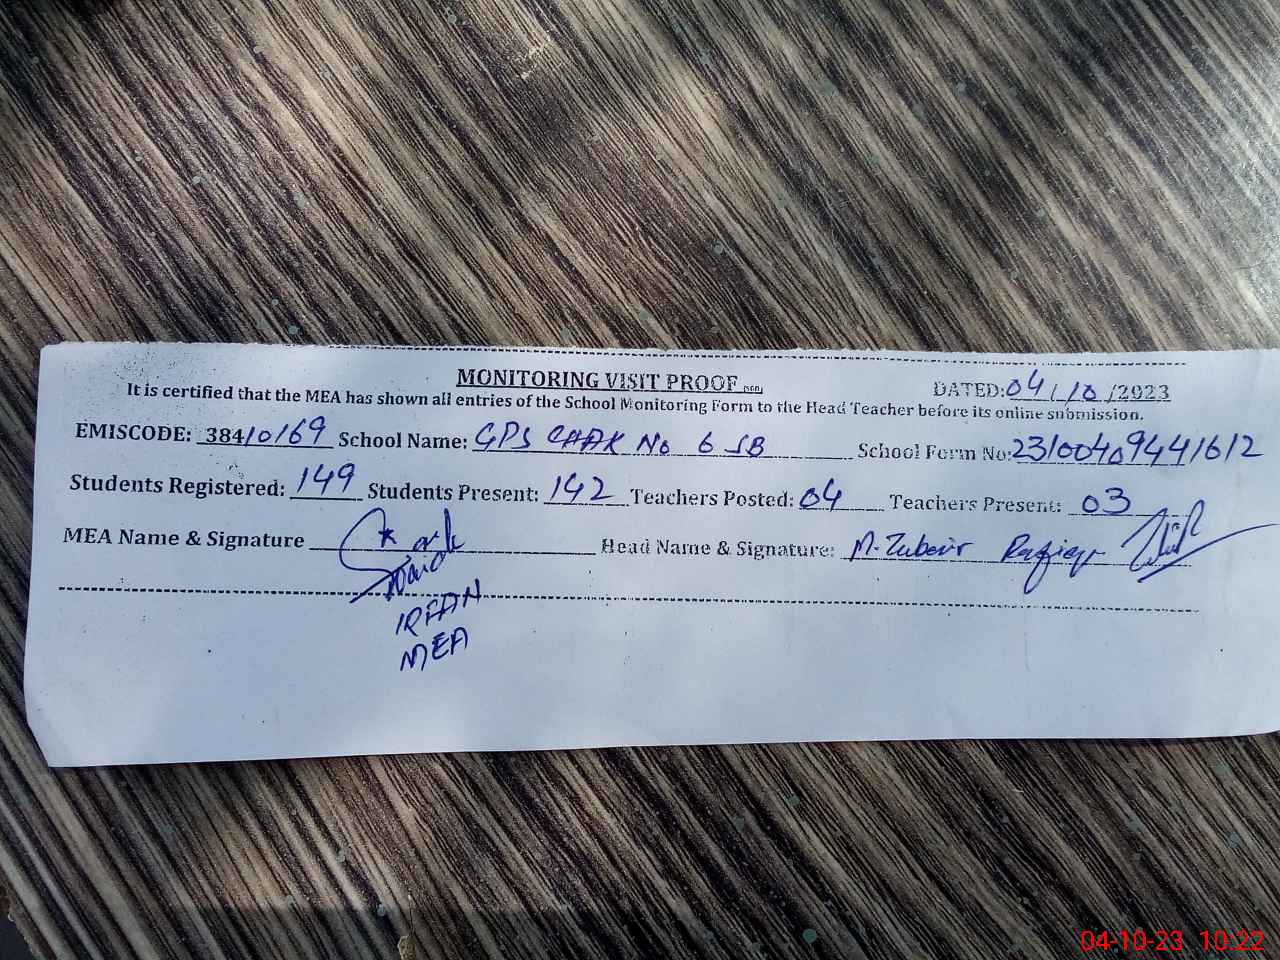 MONITORING VISIT PROOF
DATED: 04/10/2023
It is certified that the MEA has shown all entries of the School Monitoring Form to the Head Teacher before its online submission.
EMISCODE: 38410169 School Name: GPS CHAK No 6 SB School Form No: 23100409441612
Students Registered: 149 Students Present: 142 Teachers Posted: 04 Teachers Present: 03
MEA Name & Signature Head Name & Signature: M. Zubair Rafiq
IRFAN
MEA
04-10-23 10:22